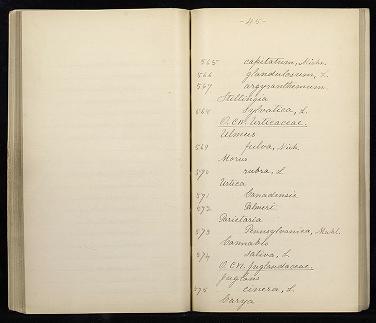 -45-
565 capitatum, Michx.
566 glandulosum, L.
567 argyranthemum.
Stillingia
568 Sylvatica, L.
O. CXV. Urticaceae.
Ulmus
569 fulva, Mich.
Morus
570 rubra, L
Urtica
571 Canadensis
572 Palmeri
Parietaria
573 Pennsylvanica, Muhl.
Cannabis
574 Sativa, L.
O. CXVI. Juglandaceae.
Juglans
575 cinera, L.
Carya